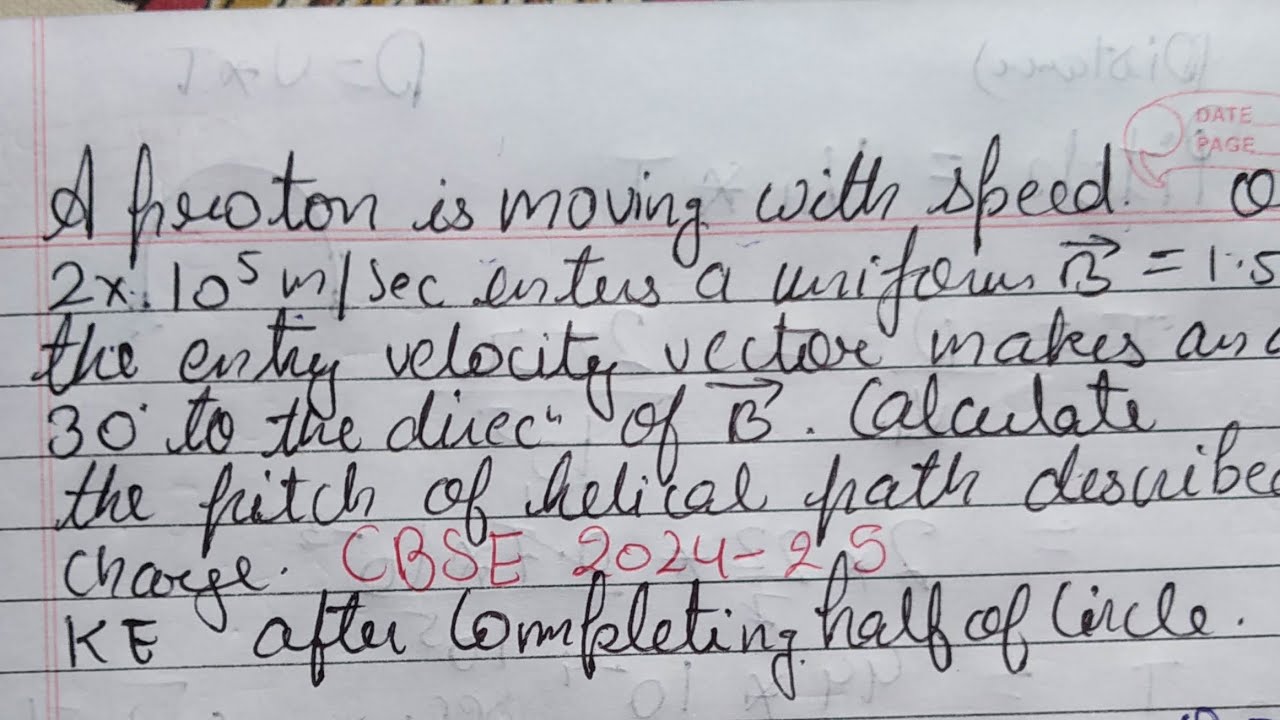 (Distance) D = V × T
DATE
PAGE
A proton is moving with speed. O
2×10⁵ m/sec enters a uniform B⃗ = 1.5
the entry velocity vector makes an
30° to the direcⁿ of B⃗. Calculate
the pitch of helical path described
charge. CBSE 2024-25
KE after Completing half of Circle.